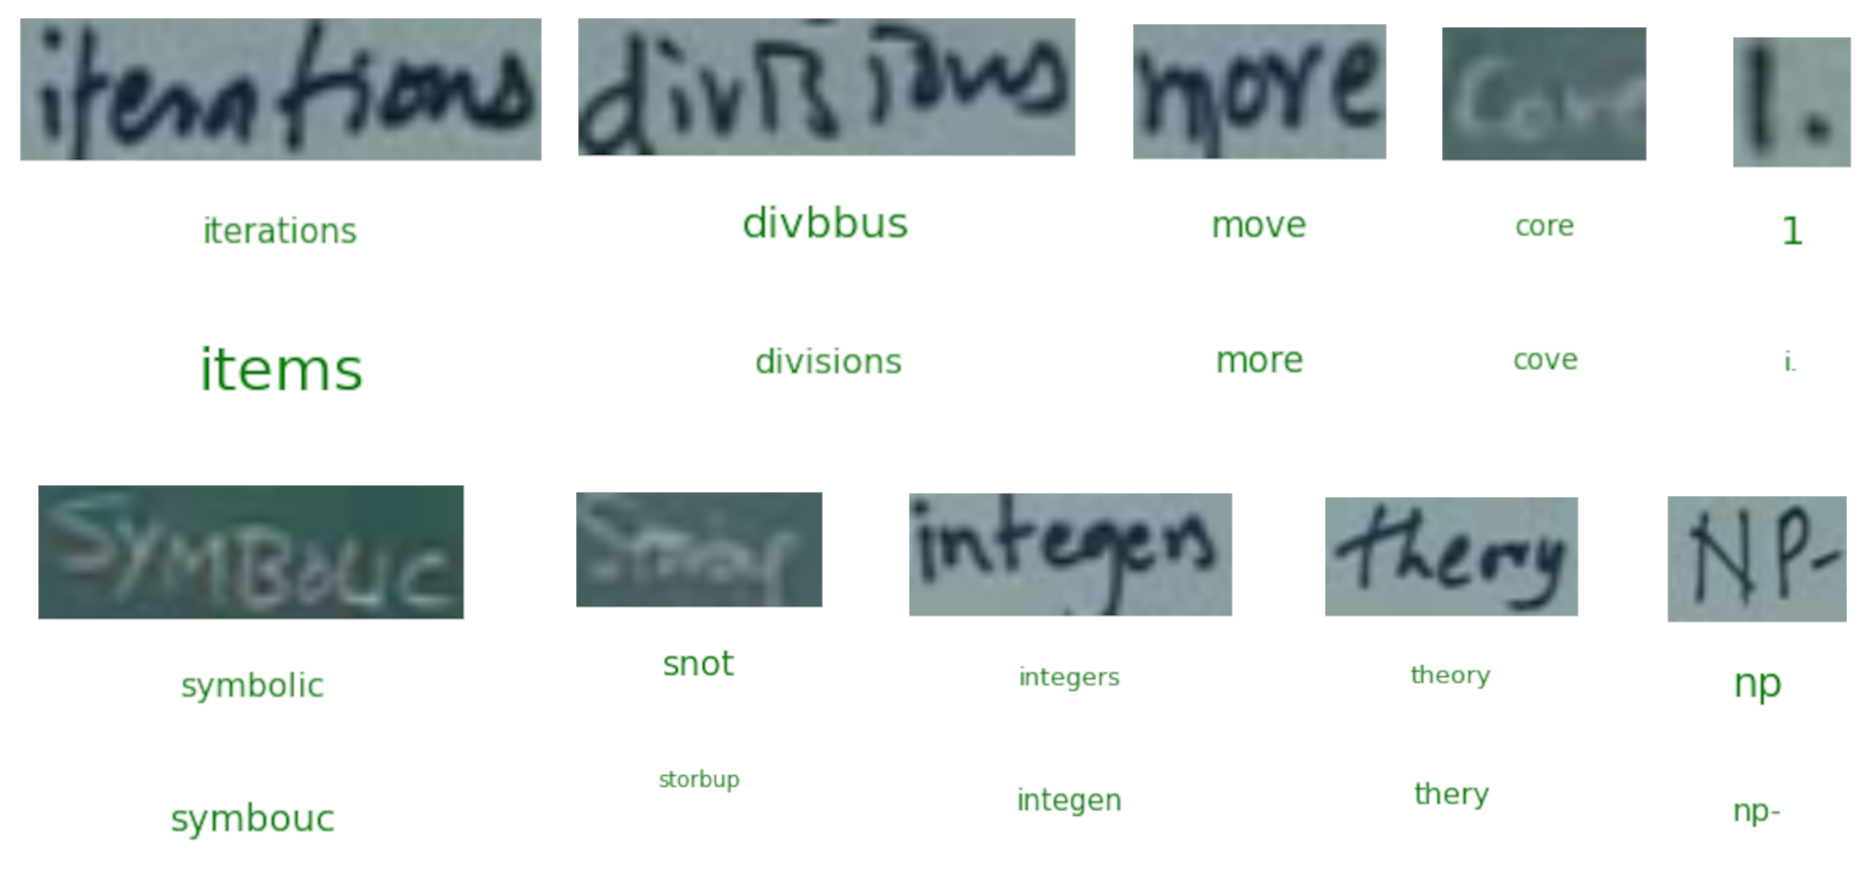 iterations divisions move 1.
iterations divbbus move core 1
items divisions more cove i.
SYMBOLIC integers theory NP-
symbolic snot integers theory np
symbouc storbup integen thery np-